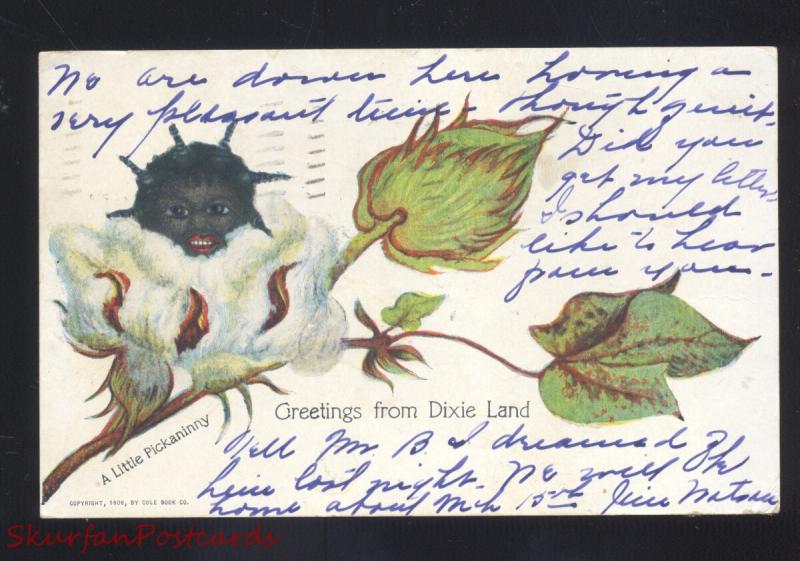 We are down here having a
very pleasant time though quiet.
Did you
get my letter
I should
like to hear
from you.
Greetings from Dixie Land
A Little Pickaninny
Well Mr. B. I dreamed
here last night. We will be
home about Mch 15th Watson
COPYRIGHT, 1906, BY COLE BOOK CO.
SkurfanPostcards